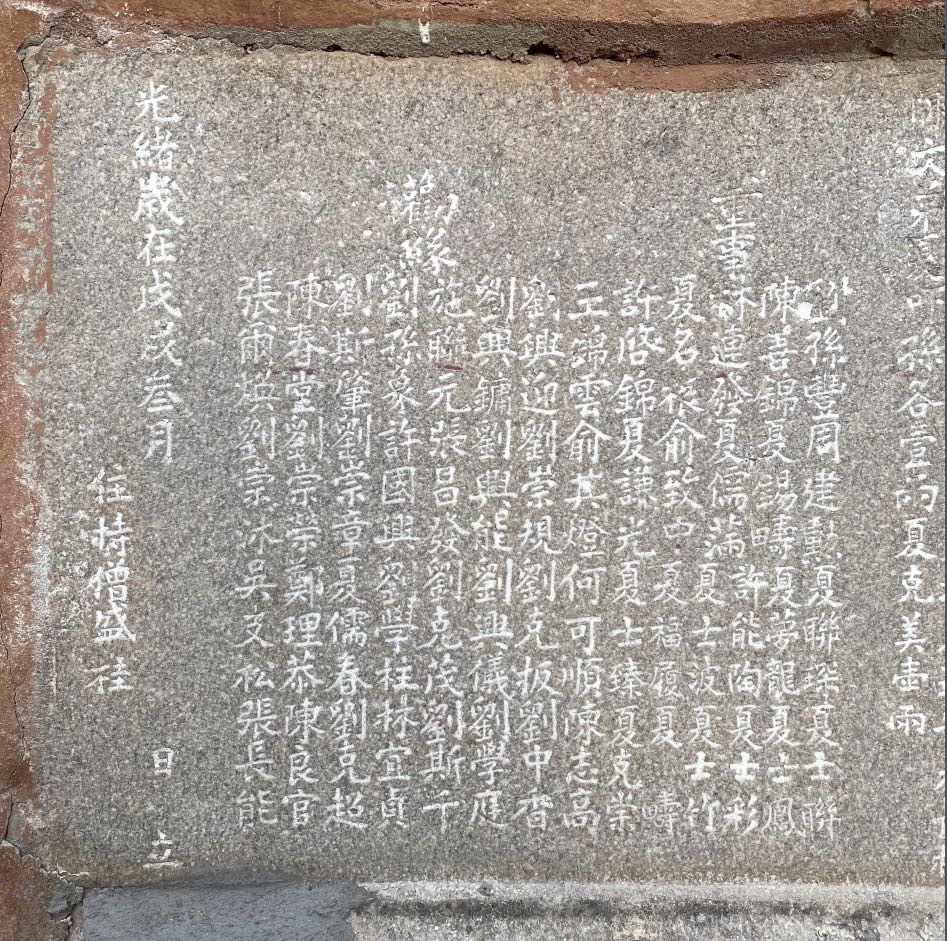 叩孫各壹兩夏克美壹兩
董事
劉孫豐周建勳夏聯琛夏士聯
陳喜錦夏錫疇夏夢龍夏士鳳
林連發夏儒藩許能陶夏士彩
夏名振俞致中夏士波夏士竹
許啓錦夏謙光夏福履夏疇
王錦雲俞其燈夏士臻夏克棠
劉興迎劉崇規何可順陳志高
劉興鏞劉興能劉克扳劉中香
施聯元張昌發劉興儀劉學庭
勸緣
劉孫彖許國興劉克茂劉斯千
劉斯肇劉崇章劉學柱林宜貞
陳春堂劉崇榮夏儒春劉克超
張爾英劉崇冰鄭理恭陳良官
吳支松張長能
光緒歲在戊戌叁月日立
住持僧盛